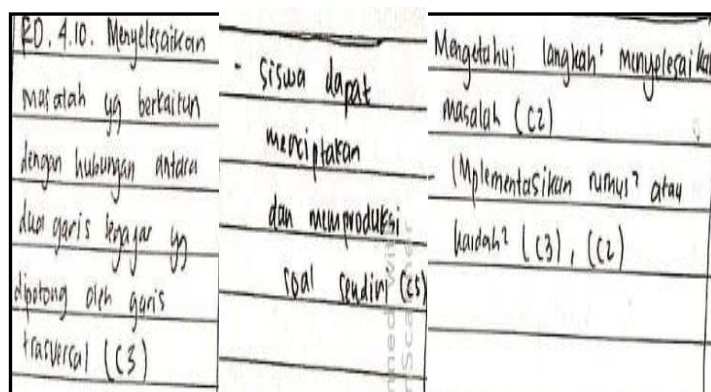 KD. 4.10. Menyelesaikan
masalah yg berkaitan
dengan hubungan antara
dua garis sejajar yg
dipotong oleh garis
trasversal (C3)
- siswa dapat
menciptakan
dan memproduksi
soal sendiri (C5)
Mengetahui langkah² menyelesaikan
masalah (C2)
- Implementasikan rumus² atau
kaidah² (C3), (C2)